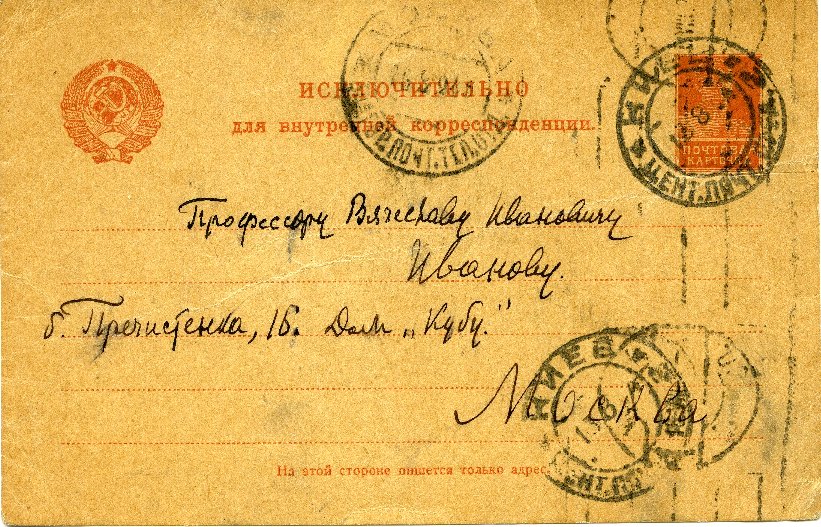 ИСКЛЮЧИТЕЛЬНО
для внутренней корреспонденции.
ПОЧТОВАЯ
КАРТОЧКА
КИЕВ
ЦЕНТ. ПОЧТ
Профессору Вячеславу Ивановичу
Иванову.
б. Пречистенка, 16. Дом „Кубу."
КИЕВ
Москва
На этой стороне пишется только адрес.